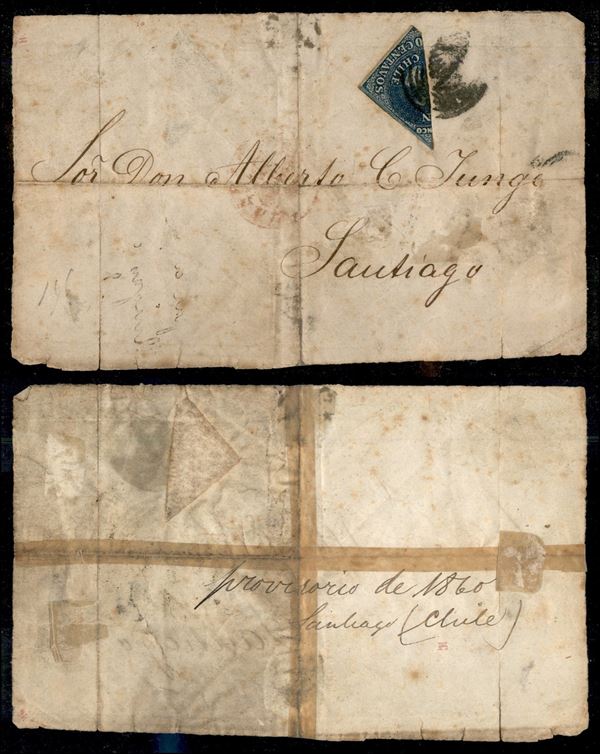 CENTAVOS
CHILE
Sor. Don Alberto C. Junge
Santiago
provisorio de 1860
Santiago (Chile)